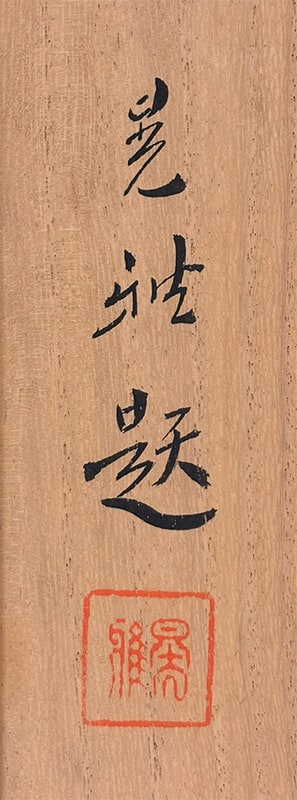 晃雅題
晃雅